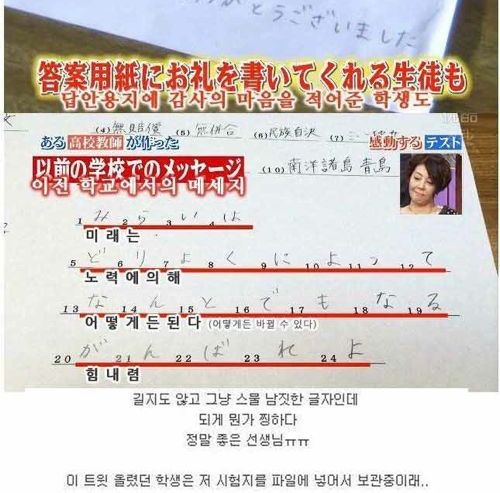 がとうございました
答案用紙にお礼を書いてくれる生徒も
답안용지에 감사의 마음을 적어준 학생도
(4) 無賠償 (5) 無併合 (6) 民族自決 (7)
ある高校教師が作った 感動するテスト
以前の学校でのメッセージ
(10) 南洋諸島 青島
이전 학교에서의 메세지
1 み 2 ら 3 い 4 は
미래는
5 ど 6 り 7 よ 8 く 9 に 10 よ 11 っ 12 て
노력에의해
13 な 14 ん 15 と 16 で 17 も 18 な 19 る
어떻게든된다 (어떻게든 바뀔 수 있다)
20 が 21 ん 22 ば 23 れ 24 よ
힘내렴
길지도 않고 그냥 스물 남짓한 글자인데
되게 뭔가 찡하다
정말 좋은 선생님ㅠㅠ
이 트윗 올렸던 학생은 저 시험지를 파일에 넣어서 보관중이래..